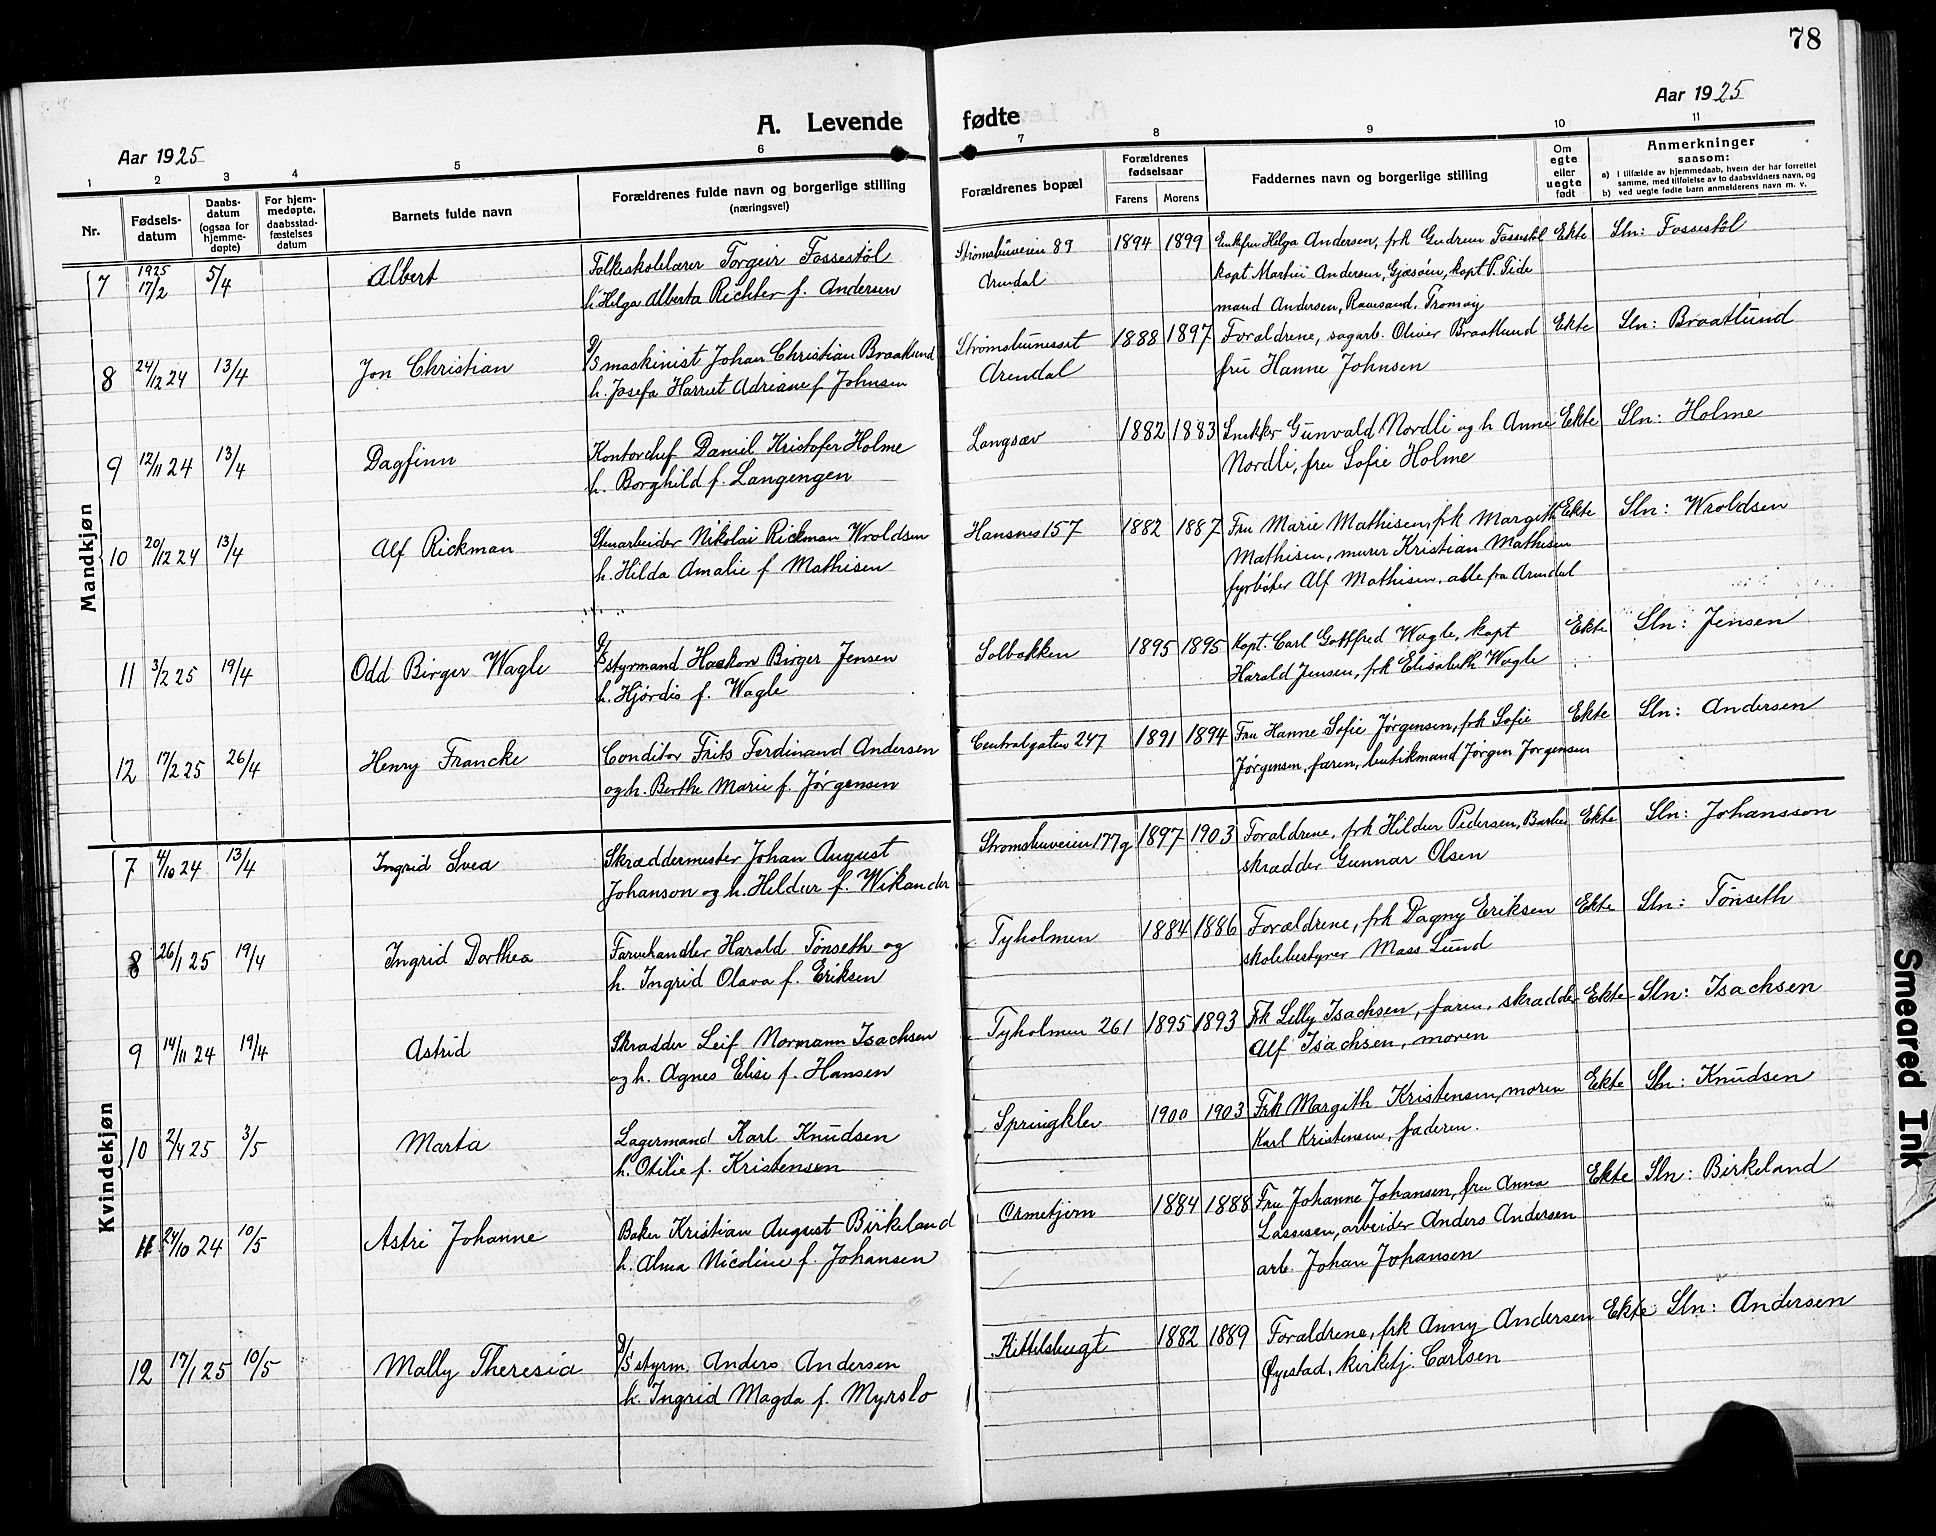 78
Aar 1925
A. Levende
fødte
Aar 1925
1 2 3 4 5 6
7 8 9 10 11
Nr.
Fødsels-
datum
Daabs-
datum
(ogsaa for
hjemme-
døpte)
For hjem-
medøpte,
daabsstad-
fæstelses
datum
Barnets fulde navn
Forældrenes fulde navn og borgerlige stilling
(næringsvei)
Forældrenes bopæl
Forældrenes
fødselsaar
Farens Morens
Faddernes navn og borgerlige stilling
Om
egte
eller
uegte
født
Anmerkninger
saasom:
a) i tilfælde av hjemmedaab, hvem der har forrettet
samme, med tilføielse av to daabsvidners navn, og
b) ved uegte fødte barn anmelderens navn m. v.
Mandkjøn
7 1925 17/2 5/4 Albert
Folkeskolelærer Torgeir Fossestøl
h. Helga Alberta Richter f. Andersen
Strømsbuveien 89
Arendal
1894 1899
Enkefru Helga Andersen, frk Gudrun Fossestøl
kapt Martin Andersen, Gjæsøen, kapt P. Tide
mand Andersen, Rævesand, Tromøy
Ekte Sln: Fossestøl
8 24/12 24 13/4 Jon Christian
D/S maskinist Johan Christian Braatlund
h. Josefa Harriet Adriane f. Johnsen
Strømsbunesset
Arendal
1888 1897
Forældrene, sagarb. Oliver Braatlund
fru Hanne Johnsen
Ekte Sln: Braatlund
9 12/11 24 13/4 Dagfinn
Kontorchef Daniel Kristofer Holme
h. Borghild f. Langengen
Langsæv
1882 1883
Snekker Gunvald Nordli og h Anne
Nordli, fru Sofie Holme
Ekte Sln: Holme
10 20/12 24 13/4 Alf Rickman
Stenarbeider Nikolai Rickman Wroldsen
h. Hilda Amalie f Mathisen
Hansnes 157
1882 1887
Fru Marie Mathisen, frk Margith
Mathisen, murer Kristian Mathisen
fyrbøter Alf Mathisen, alle fra Arendal
Ekte Sln: Wroldsen
11 3/2 25 19/4 Odd Birger Wagle
D/S styrmand Haakon Birger Jensen
h. Hjørdis f. Wagle
Solbakken
1895 1895
Kapt. Carl Gottfred Wagle, kapt
Harald Jensen, frk Elisabeth Wagle
Ekte Sln: Jensen
12 17/2 25 26/4 Henry Francke
Conditor Frits Ferdinand Andersen
og h. Berthe Marie f. Jørgensen
Centralgaten 247
1891 1894
Fru Hanne Sofie Jørgensen, frk Sofie
Jørgensen, faren, butikmand Jørgen Jørgensen
Ekte Sln: Andersen
Kvindekjøn
7 4/10 24 13/4 Ingrid Svea
Skræddermester Johan August
Johanson og h. Hildur f. Wikander
Strømsbuveien 177g
1897 1903
Forældrene, frk Hildur Pedersen, Barbu
skrædder Gunnar Olsen
Ekte Sln: Johansson
8 26/1 25 19/4 Ingrid Dorthea
Farvehandler Harald Tønseth og
h. Ingrid Olava f. Eriksen
Tyholmen
1884 1886
Forældrene, frk Dagny Eriksen
skolebestyrer Mass Lund
Ekte Sln: Tønseth
9 14/11 24 19/4 Astrid
Skrædder Leif Normann Isachsen
og h. Agnes Elise f. Hansen
Tyholmen 261
1895 1893
Frk Lilly Isachsen, faren, skrædder
Alf Isachsen, moren
Ekte Sln: Isachsen
10 2/4 25 3/5 Marta
Lagermand Karl Knudsen
h. Otilie f. Kristensen
Springklev
1900 1903
Frk Margith Kristensen, moren
Karl Kristensen, faderen.
Ekte Sln: Knudsen
11 24/10 24 10/5 Astri Johanne
Baker Kristian August Birkeland
h. Alma Nicoline f. Johansen
Ormetjern
1884 1888
Fru Johanne Johansen, fru Anna
Lassesen, arbeider Anders Andersen
arb. Johan Johansen
Ekte Sln: Birkeland
12 17/1 25 10/5 Mally Theresia
D/S styrm. Anders Andersen
h. Ingrid Magda f. Myrslo
Kittelsbugt
1882 1889
Forældrene, frk Anny Andersen
Øyestad, kirketj. Carlsen
Ekte Sln: Andersen
Smeared Ink